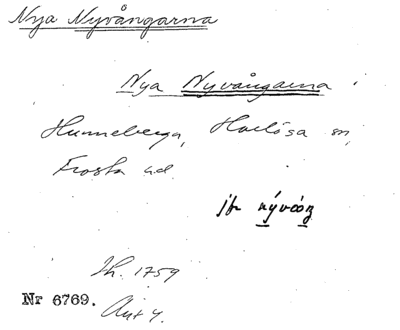 Nya Nyvångarna
Nya Nyvångarna
Hunneberga, Harlösa sn,
Frosta hd.
jfr nývåŋ
Sk. 1759
Nr 6769.
Akt 4.